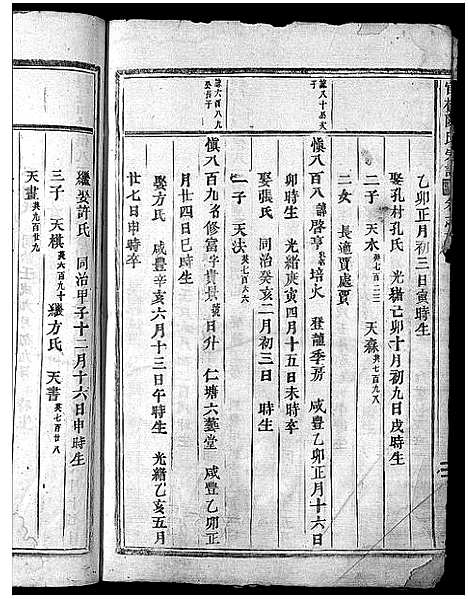 乙卯正月初三日寅時生
娶孔村孔氏 光緒己卯十月初九日戌時生
二子 天木 英七百二二 天森 英七百九八
二女 長適賈處賈
諫八十
子
慎八百八 諱啓亨 號培火 登龍季房 咸豐乙卯正月十六日
卯時生 光緒庚寅四月十五日未時卒
娶張氏 同治癸亥二月初三日 時生
一子 天法 英七百六六
諫六百八九
長子
慎八百九 名修富 字貴景 號日升 仁塘六藝堂 咸豐乙卯正
月廿四日巳時生
娶方氏 咸豐辛亥六月十三日午時生 光緒乙亥五月
廿七日申時卒
繼娶許氏 同治甲子十二月十六日申時生
三子 天棋 英六百九十 繼方氏 天書 英七百廿八
天畫 英九百廿九